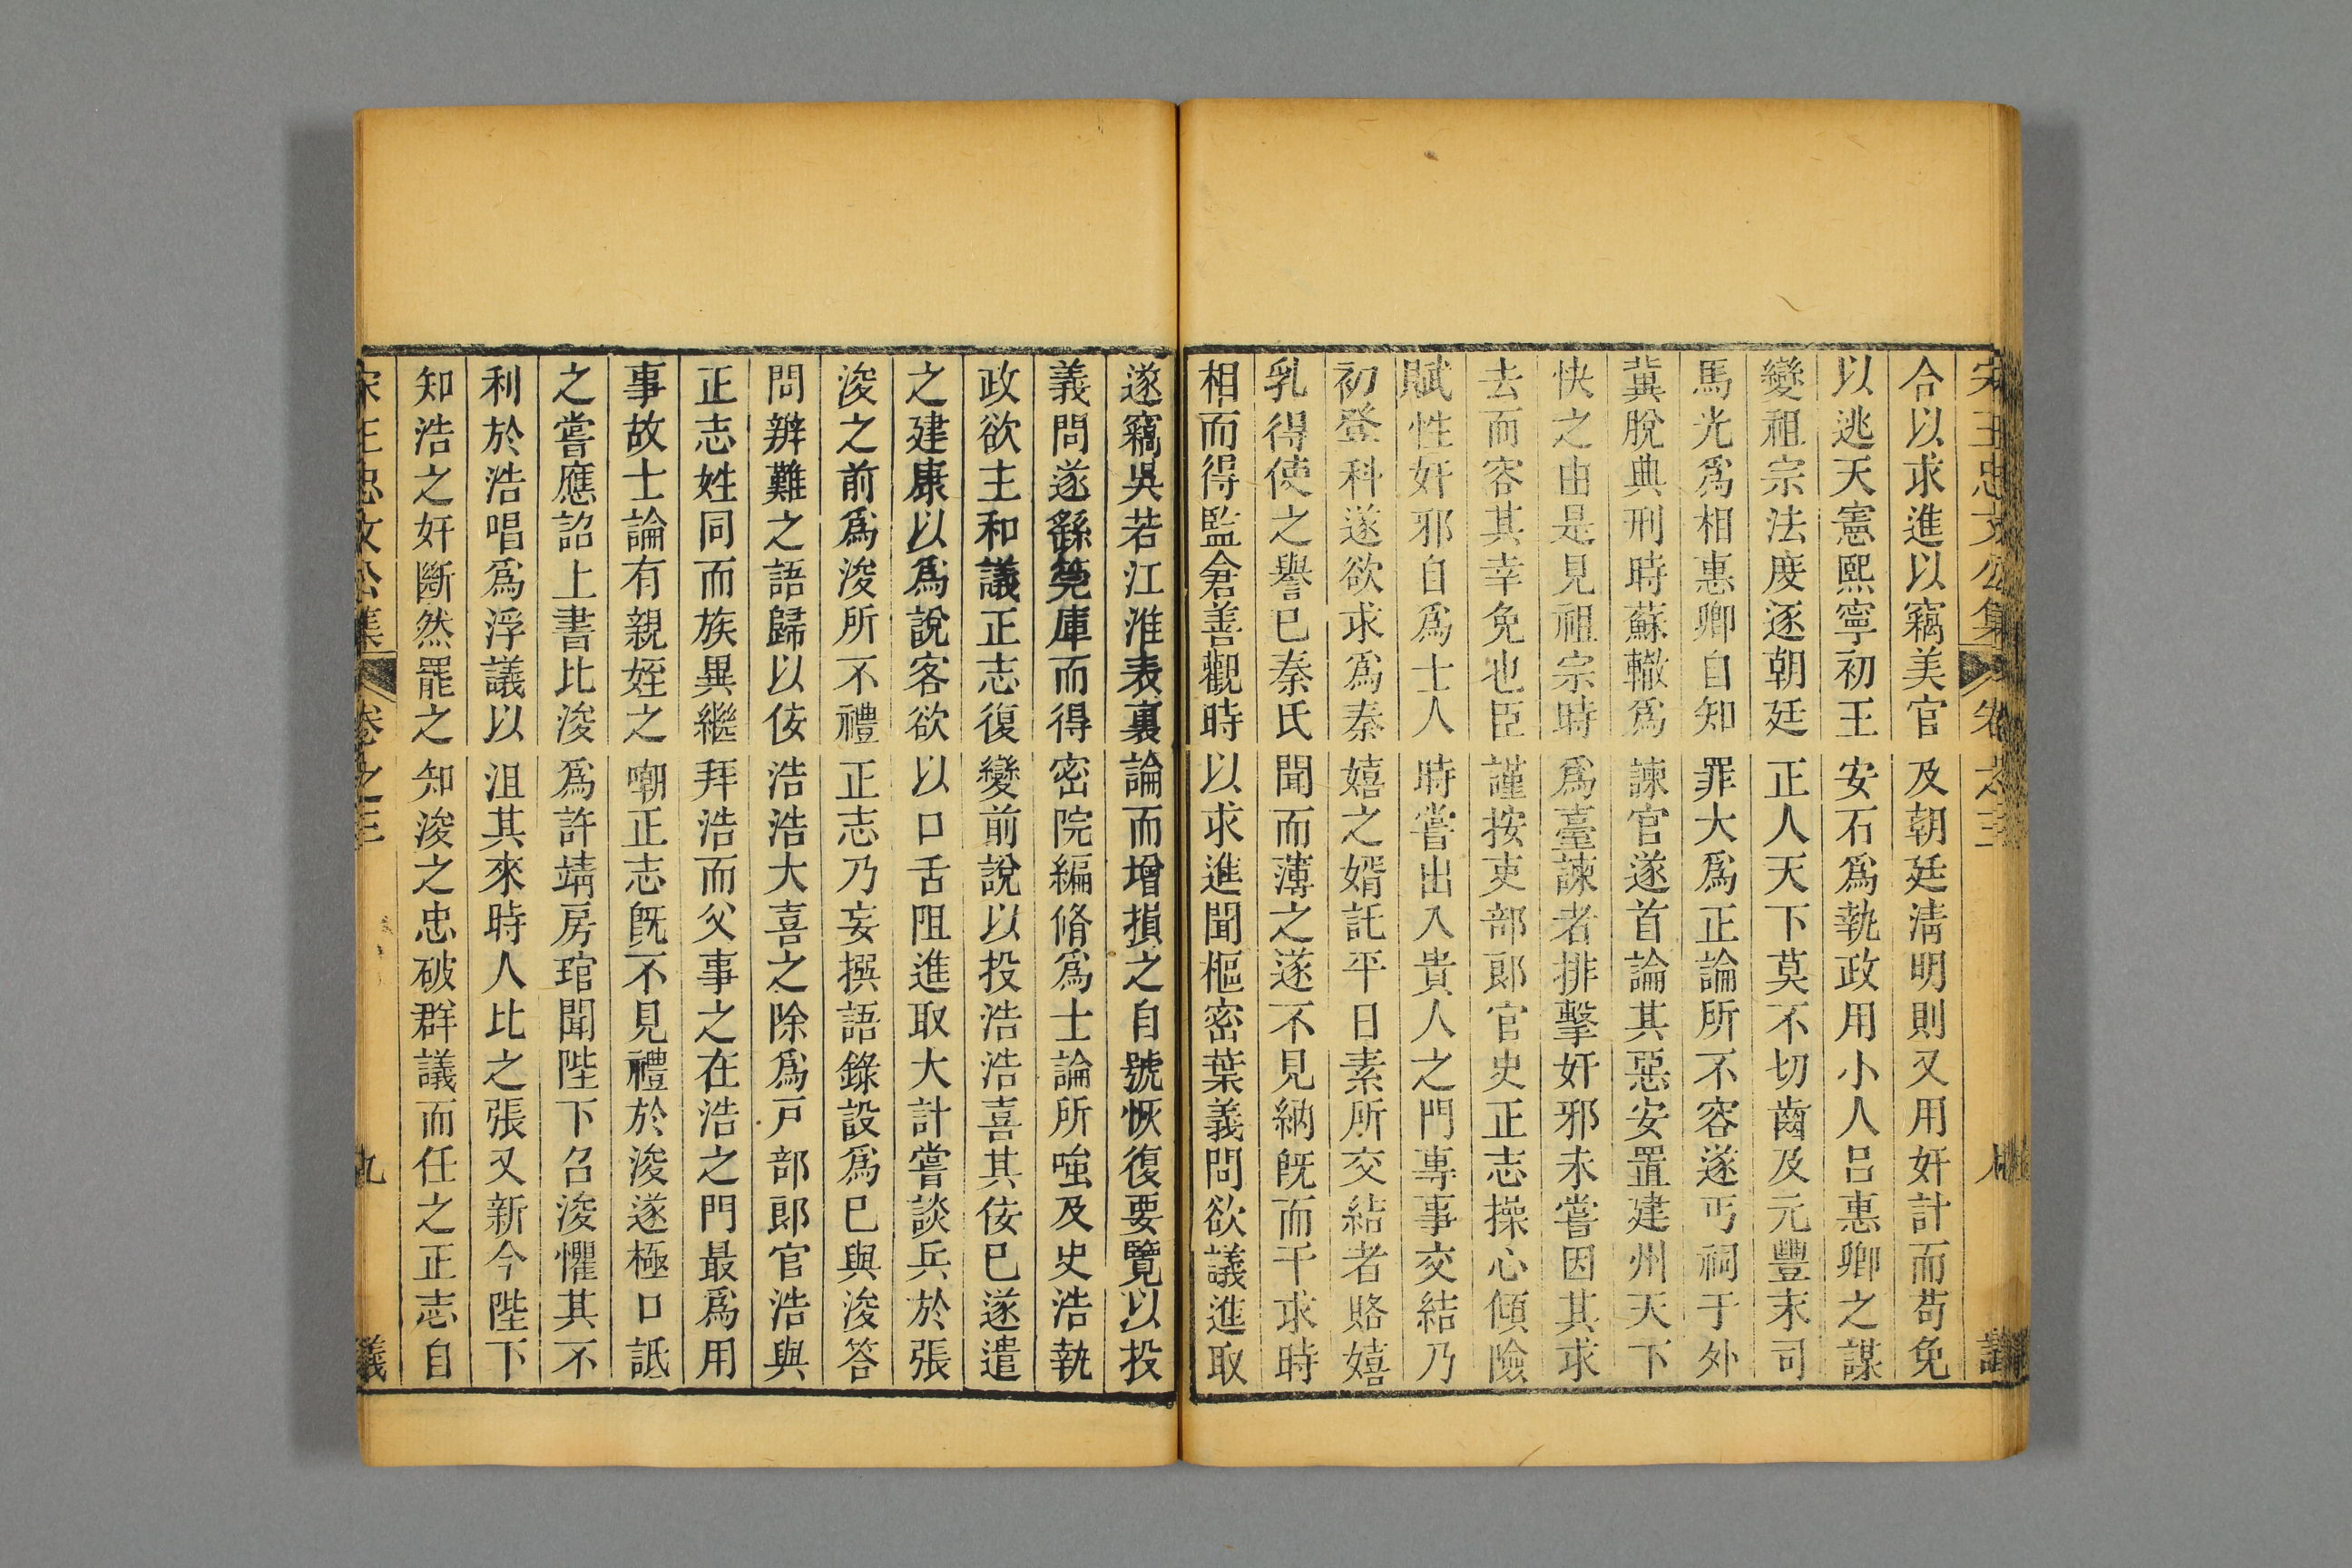 宋王忠文公集 卷之三 八 議
合以求進以竊美官及朝廷淸明則又用奸計而苟免
以逃天憲熙寧初王安石爲執政用小人呂惠卿之謀
變祖宗法度逐朝廷正人天下莫不切齒及元豐末司
馬光爲相惠卿自知罪大爲正論所不容遂丐祠于外
冀脫典刑時蘇轍爲諫官遂首論其惡安置建州天下
快之由是見祖宗時爲臺諫者排擊奸邪未嘗因其求
去而容其幸免也臣謹按吏部郎官史正志操心傾險
賦性奸邪自爲士人時嘗出入貴人之門專事交結乃
初登科遂欲求爲秦嬉之婿託平日素所交結者賂嬉
乳得使之譽已秦氏聞而薄之遂不見納旣而千求時
相而得監倉善觀時以求進聞樞密葉義問欲議進取
遂竊吳若江淮表裏論而增損之自號恢復要覽以投
義問遂繇筦庫而得密院編脩爲士論所嗤及史浩執
政欲主和議正志復變前說以投浩浩喜其佞已遂遣
之建康以爲說客欲以口舌阻進取大計嘗談兵於張
浚之前爲浚所不禮正志乃妄撰語錄設爲已與浚答
問辨難之語歸以佞浩浩大喜之除爲戸部郎官浩與
正志姓同而族異繼拜浩而父事之在浩之門最爲用
事故士論有親姪之嘲正志旣不見禮於浚遂極口詆
之嘗應詔上書比浚爲許靖房琯聞陛下召浚懼其不
利於浩唱爲浮議以沮其來時人比之張又新今陛下
知浩之奸斷然罷之知浚之忠破群議而任之正志自
宋王忠文公集 卷之三 九 議